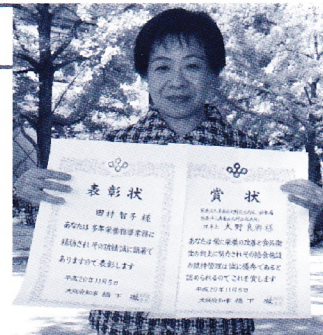 表彰状
田村智子様
あなたは多年栄養指導業務に
精励されその功績は誠に顕著で
ありますので表彰します
平成20年11月5日
大阪府知事 橋下 徹
賞状
大野良興様
あなたは常に栄養の改善と食品衛
生の向上に努力されその給食施設
の維持管理は誠に優秀であると
認められるのでこれを賞します
平成20年11月5日
大阪府知事 橋下 徹